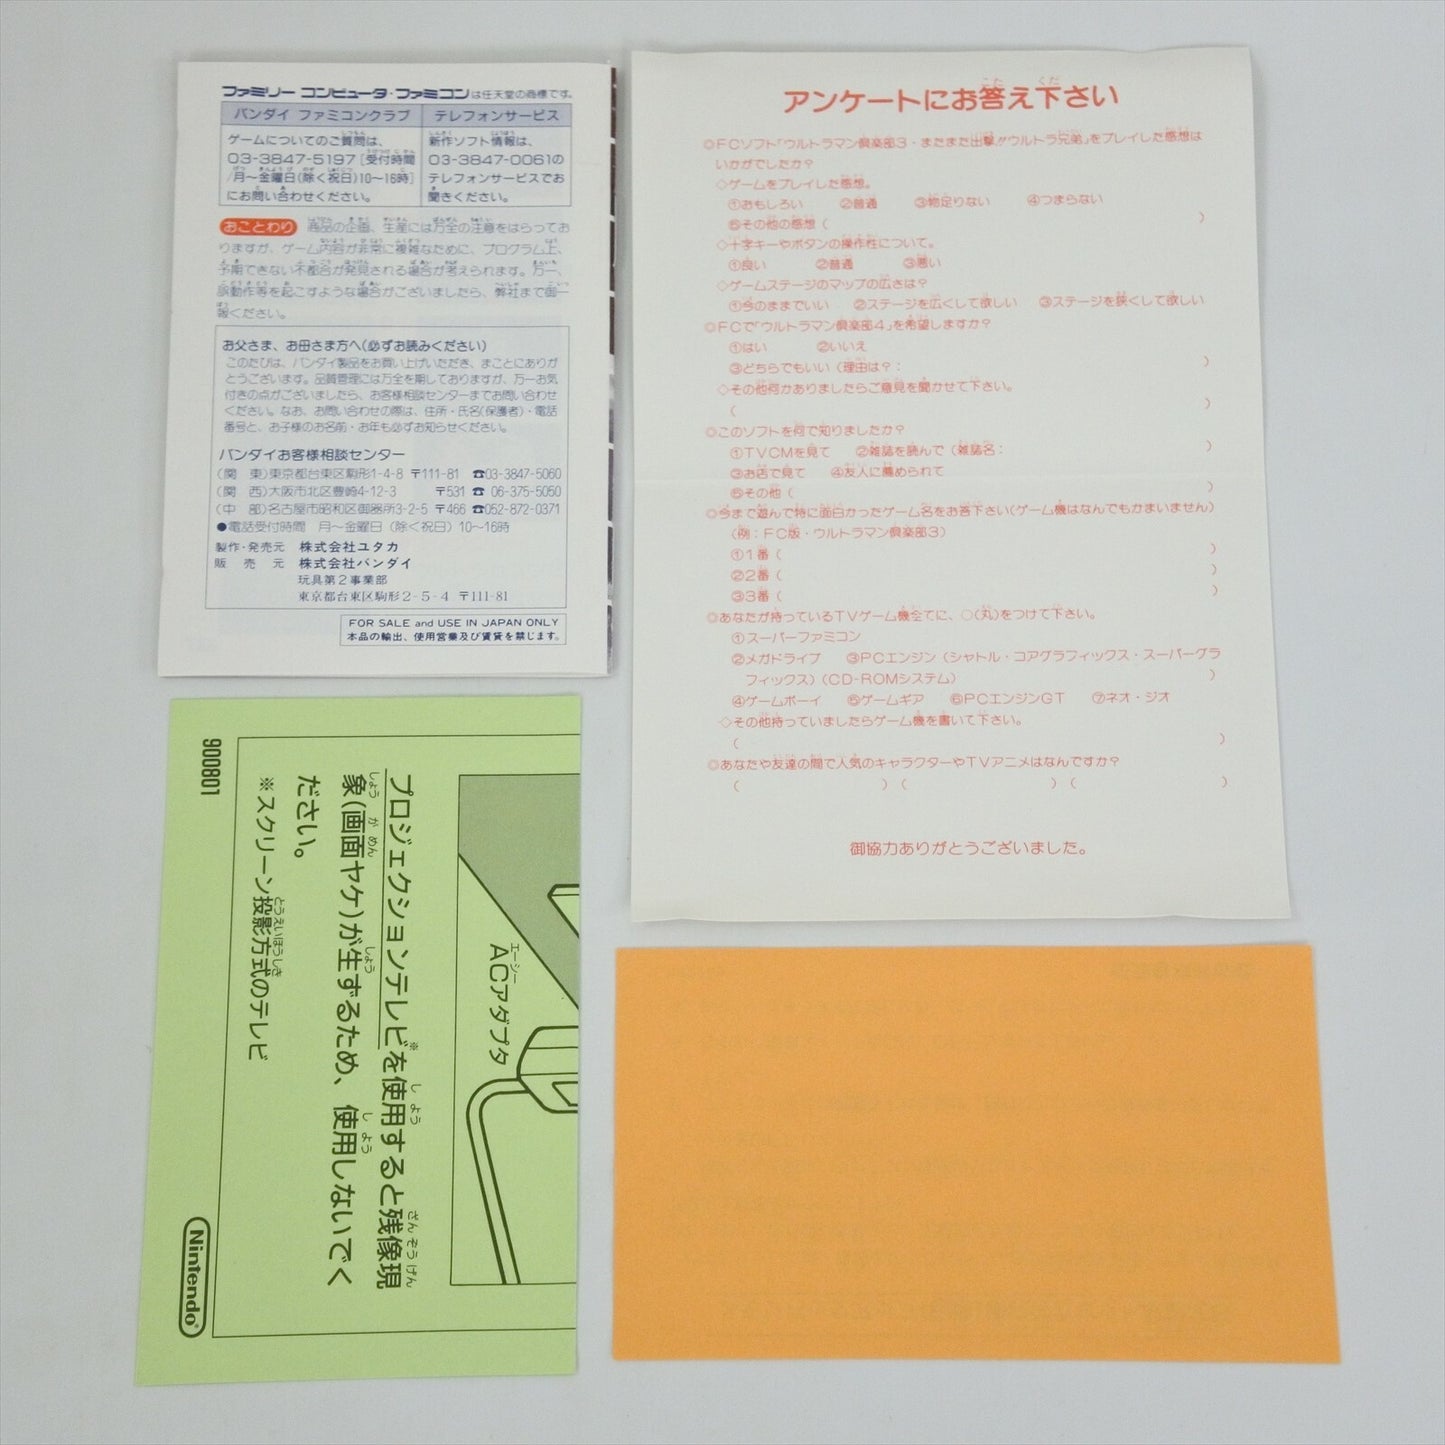 ファミリー コンピュータ・ファミコンは任天堂の商標です。
バンダイ ファミコンクラブ
テレフォンサービス
ゲームについてのご質問は、
03-3847-5197[受付時間
/月〜金曜日(除く祝日)10〜16時]
にお問い合わせください。
新作ソフト情報は、
03-3847-0061の
テレフォンサービスでお
聞きください。
おことわり 商品の企画、生産には万全の注意をはらってお
りますが、ゲーム内容が非常に複雑なために、プログラム上、
予期できない不都合が発見される場合が考えられます。万一、
誤動作等を起こすような場合がございましたら、弊社まで御一
報ください。
お父さま、お母さま方へ(必ずお読みください)
このたびは、バンダイ製品をお買い上げいただき、まことにありが
とうございます。品質管理には万全を期しておりますが、万一お気
付きの点がございましたら、お客様相談センターまでお問い合わせ
ください。なお、お問い合わせの際は、住所・氏名(保護者)・電話
番号と、お子様のお名前・お年も必ずお知らせください。
バンダイお客様相談センター
(関 東)東京都台東区駒形1-4-8 〒111-81 ☎03-3847-5060
(関 西)大阪市北区豊崎4-12-3 〒531 ☎ 06-375-5050
(中 部)名古屋市昭和区御器所3-2-5 〒466 ☎052-872-0371
●電話受付時間 月〜金曜日(除く祝日)10〜16時
製作・発売元 株式会社ユタカ
販売元 株式会社バンダイ
玩具第2事業部
東京都台東区駒形2-5-4 〒111-81
FOR SALE and USE IN JAPAN ONLY
本品の輸出、使用営業及び賃貸を禁じます。
アンケートにお答え下さい
◎FCソフト「ウルトラマン倶楽部3・またまた出撃!!ウルトラ兄弟」をプレイした感想は
いかがでしたか?
◇ゲームをプレイした感想。
①おもしろい ②普通 ③物足りない ④つまらない
⑤その他の感想( )
◇十字キーやボタンの操作性について。
①良い ②普通 ③悪い
◇ゲームステージのマップの広さは?
①今のままでいい ②ステージを広くして欲しい ③ステージを狭くして欲しい
◎FCで「ウルトラマン倶楽部4」を希望しますか?
①はい ②いいえ
③どちらでもいい(理由は?: )
◇その他何かありましたらご意見を聞かせて下さい。
( )
◎このソフトを何で知りましたか?
①TVCMを見て ②雑誌を読んで(雑誌名: )
③お店で見て ④友人に薦められて
⑤その他( )
◎今まで遊んで特に面白かったゲーム名をお答下さい(ゲーム機はなんでもかまいません)
(例:FC版・ウルトラマン倶楽部3)
①1番( )
②2番( )
③3番( )
◎あなたが持っているTVゲーム機全てに、○(丸)をつけて下さい。
①スーパーファミコン
②メガドライブ ③PCエンジン(シャトル・コアグラフィックス・スーパーグラ
フィックス)(CD-ROMシステム) )
④ゲームボーイ ⑤ゲームギア ⑥PCエンジンGT ⑦ネオ・ジオ
◇その他持っていましたらゲーム機を書いて下さい。
( )
◎あなたや友達の間で人気のキャラクターやTVアニメはなんですか?
( ) ( ) ( )
御協力ありがとうございました。
ACアダプタ
プロジェクションテレビ※を使用すると残像現
象(画面ヤケ)が生ずるため、使用しないでく
ださい。
※スクリーン投影方式のテレビ
900801
Nintendo®